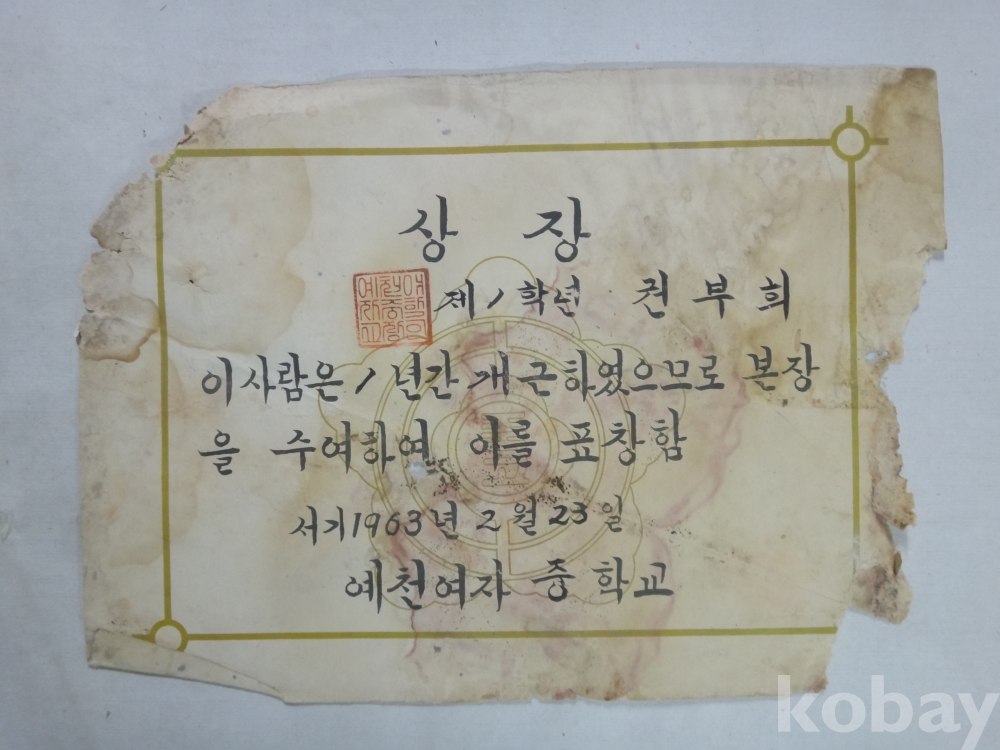 상 장
제 1 학년 권 부 희
이 사람은 1 년간 개근하였으므로 본장
을 수여하여 이를 표창함
서기 1963년 2월 23일
예천여자 중 학교
kobay